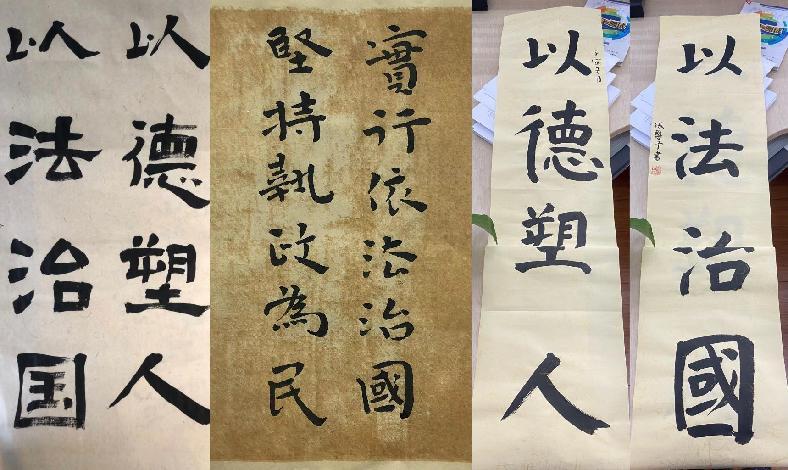 以德塑人
以法治国
實行依法治國
堅持執政為民
以德塑人
以法治國